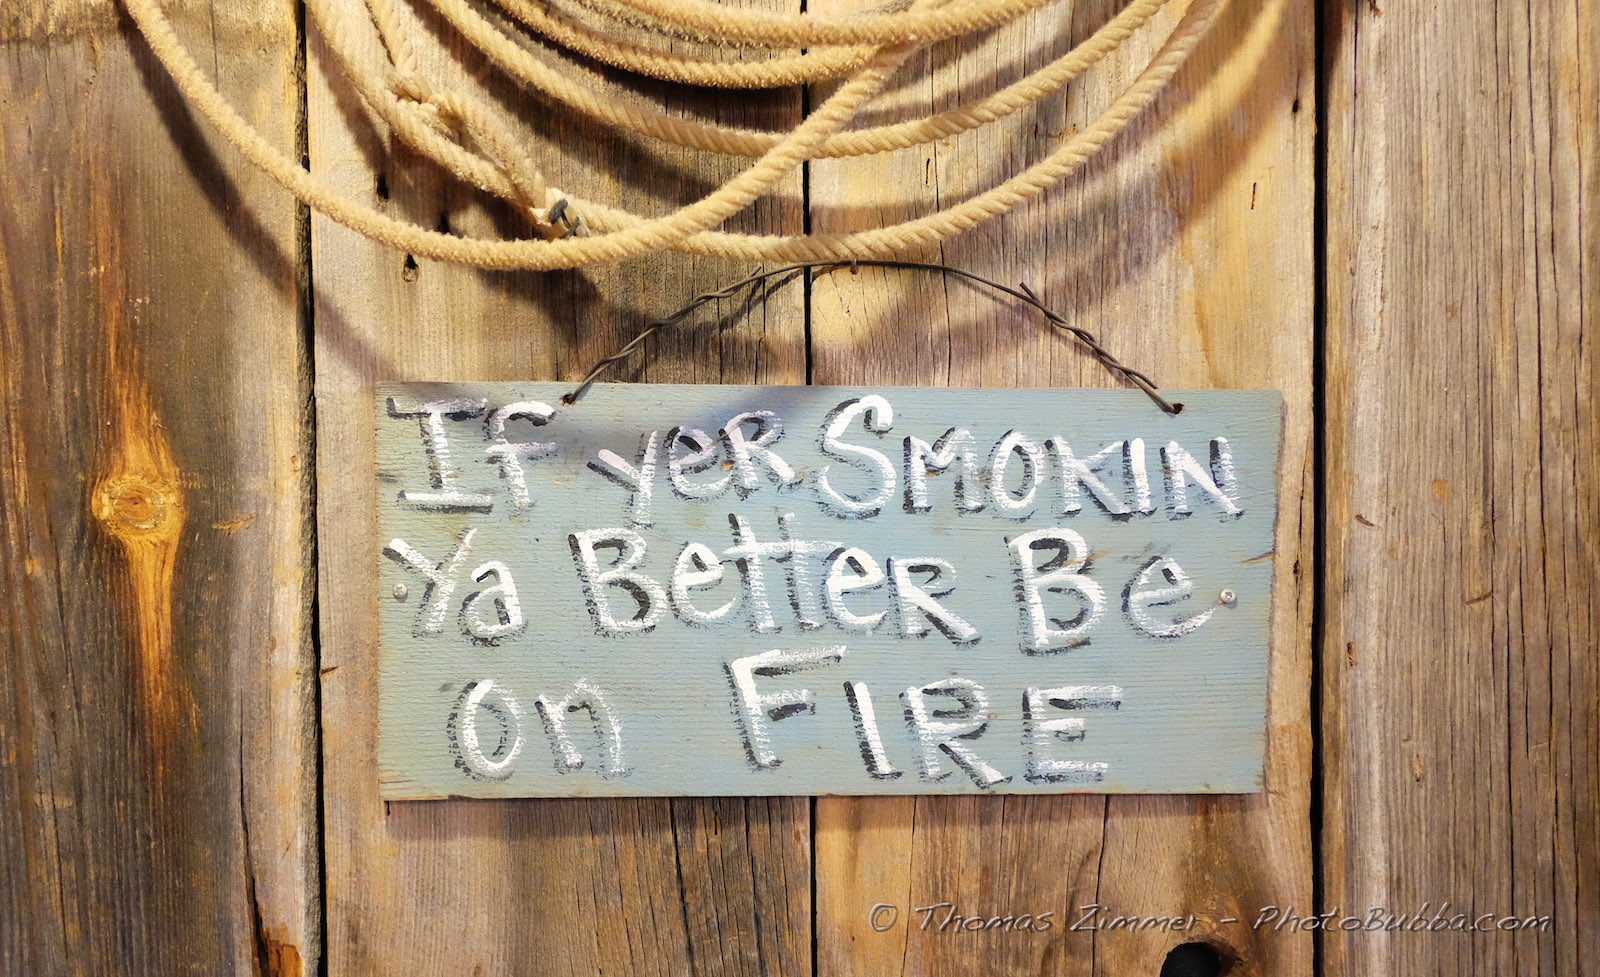 If yer Smokin
Ya Better Be
on Fire
© Thomas Zimmer - PhotoBubba.com